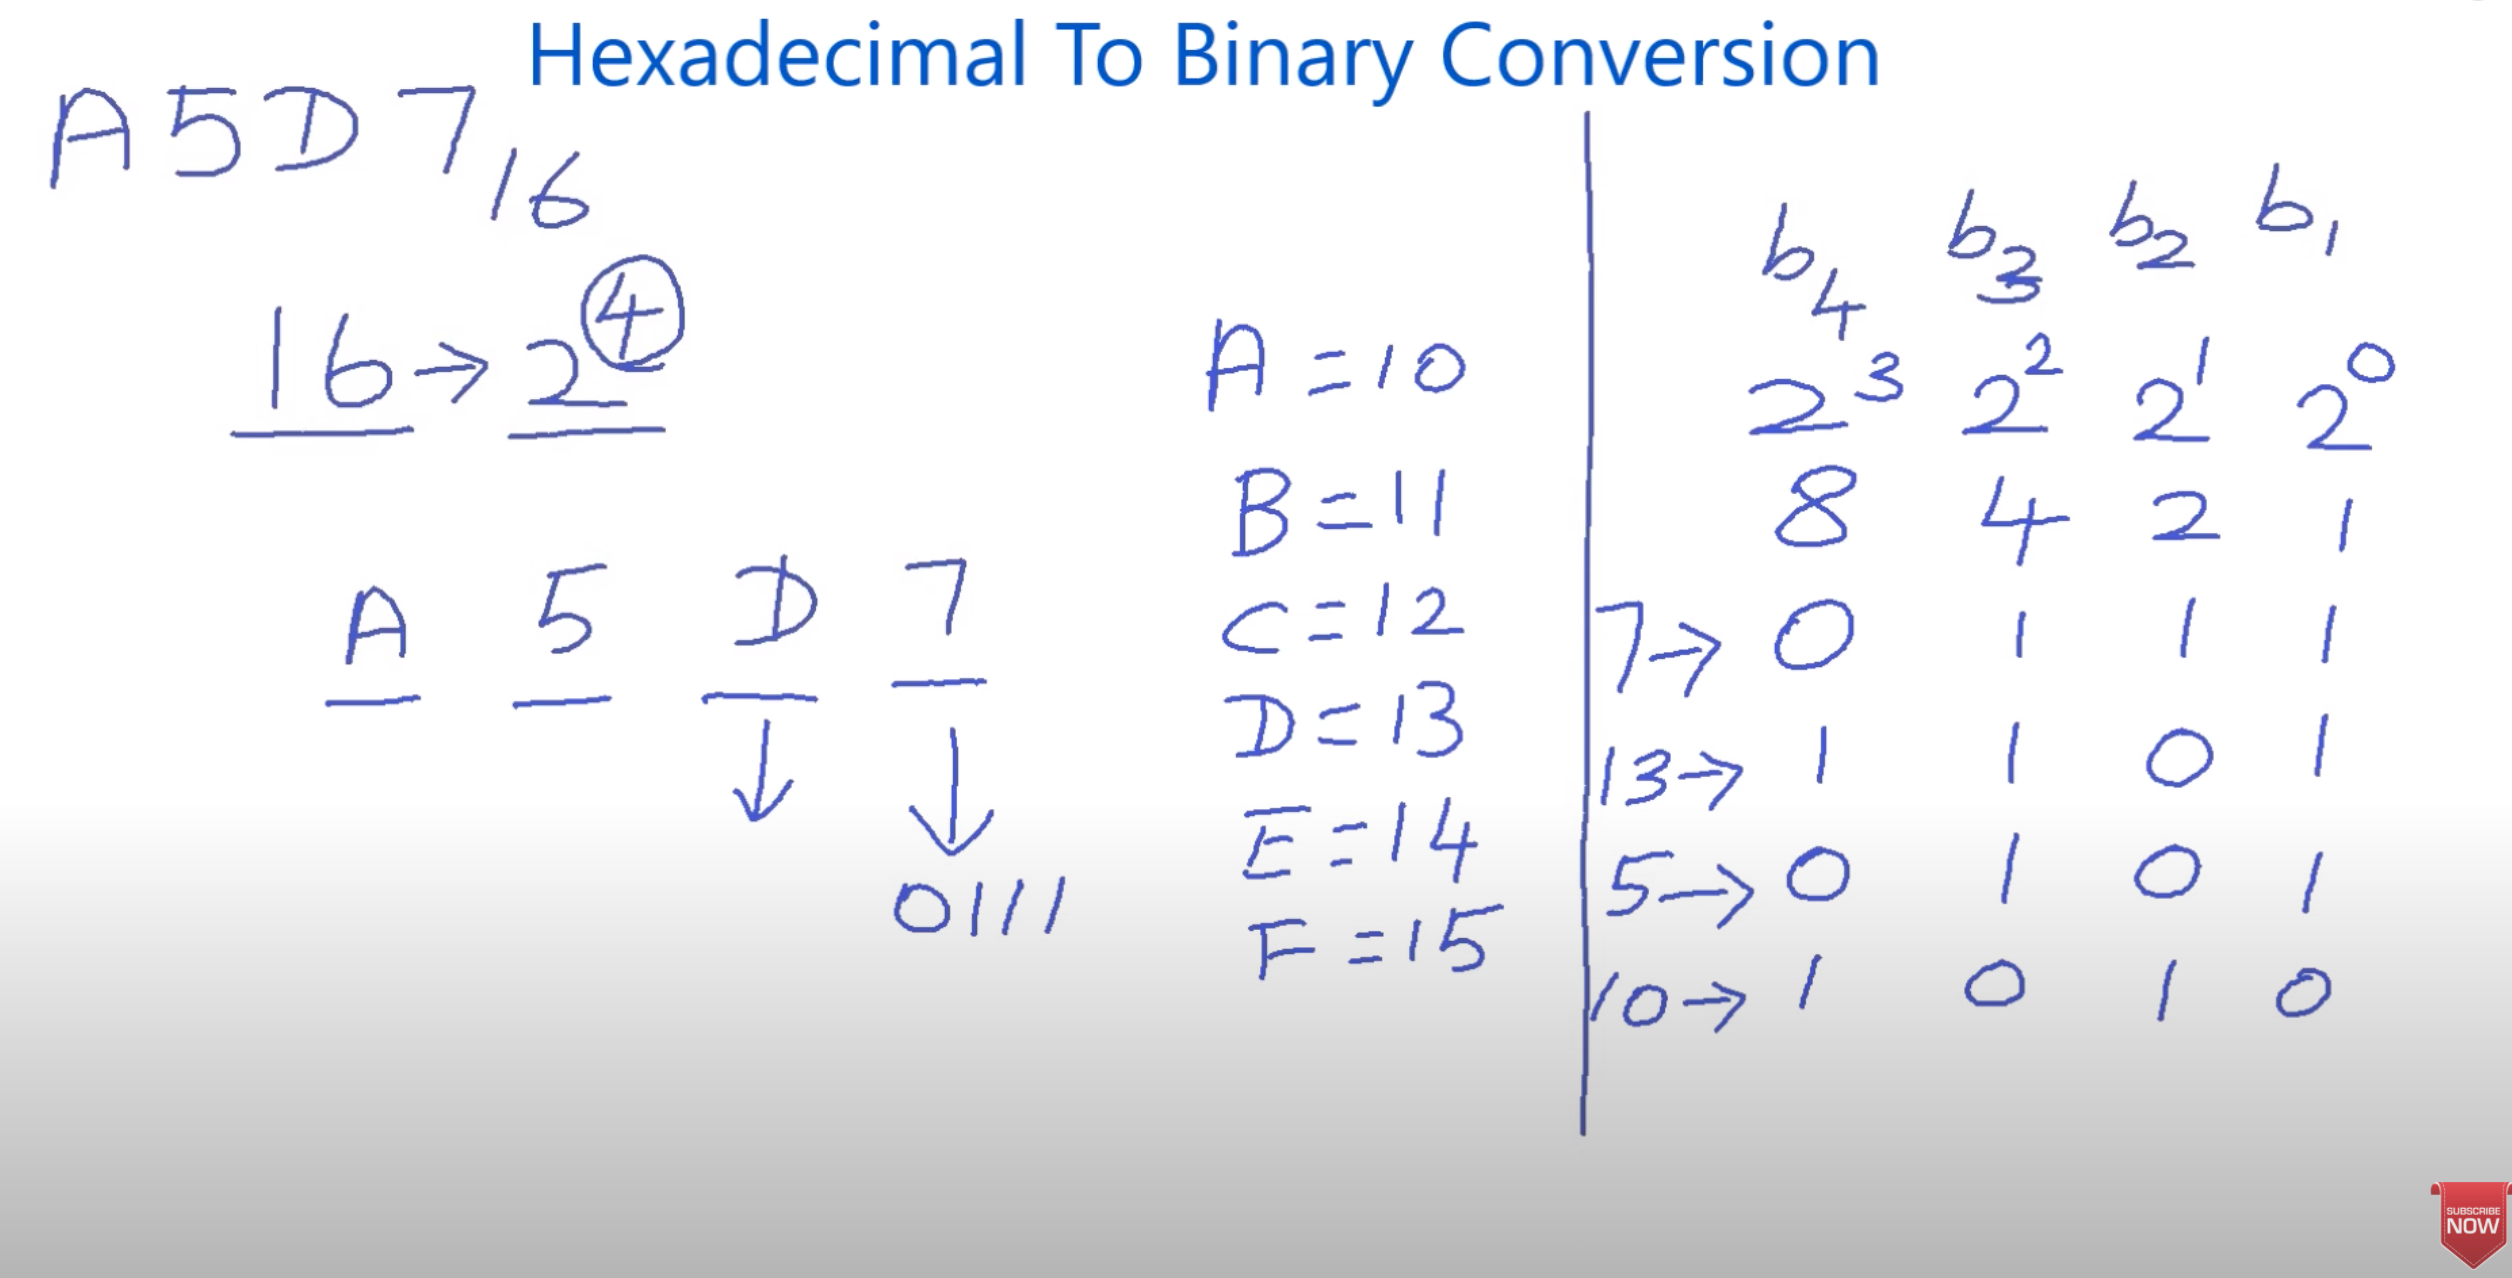 Hexadecimal To Binary Conversion
A5D7₁₆
16→2⁴
A 5 D 7
0111
A=10
B=11
C=12
D=13
E=14
F=15
b₄ b₃ b₂ b₁
2³ 2² 2¹ 2⁰
8 4 2 1
7→ 0 1 1 1
13→ 1 1 0 1
5→ 0 1 0 1
10→ 1 0 1 0
SUBSCRIBE
NOW